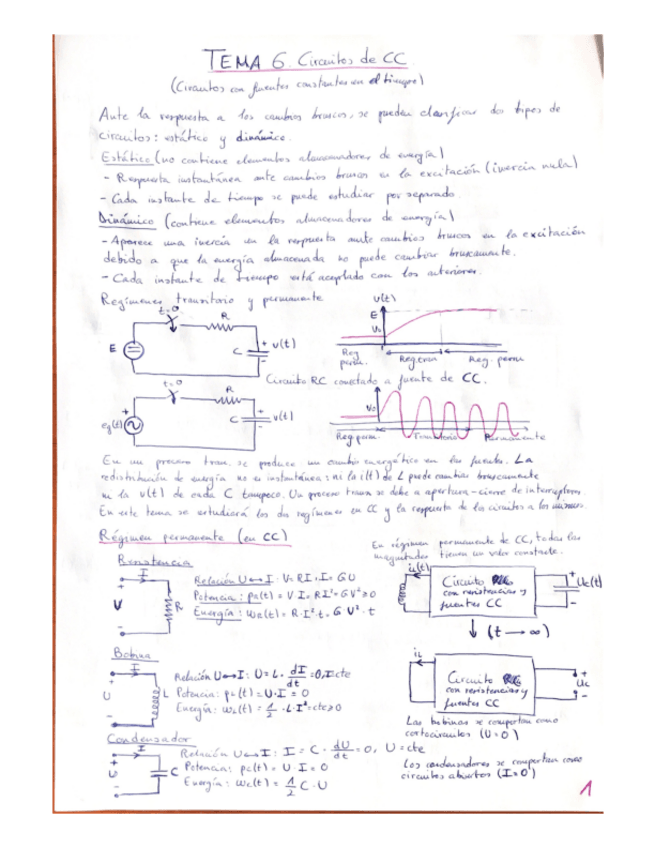 TEMA 6. Circuitos de CC
(Circuitos con fuentes constantes en el tiempo)
Ante la respuesta a los cambios bruscos, se pueden clasificar dos tipos de
circuitos: estático y dinámico.
Estático (no contiene elementos almacenadores de energía)
- Respuesta instantánea ante cambios bruscos en la excitación (inercia nula)
- Cada instante de tiempo se puede estudiar por separado.
Dinámico (contiene elementos almacenadores de energía)
- Aparece una inercia en la respuesta ante cambios bruscos en la excitación
debido a que la energía almacenada no puede cambiar bruscamente.
- Cada instante de tiempo está acoplado con los anteriores.
Regímenes transitorio y permanente
t=0
R
E
C
+ v(t)
-
v(t)
E
V₀
Reg perm.
Reg. trans
Reg. perm
Circuito RC conectado a fuente de CC.
t=0
R
eg(t)
C
+ v(t)
-
V₀
Reg perm.
Transitorio
Permanente
En un proceso tran. se produce un cambio energético en las fuentes. La
redistribución de energía no es instantánea: ni la i(t) de L puede cambiar bruscamente
ni la v(t) de cada C tampoco. Un proceso trans se debe a apertura-cierre de interruptores
En este tema se estudiará los dos regímenes en CC y la respuesta de los circuitos a los mismos.
Régimen permanente (en CC)
En régimen permanente de CC, todas las
magnitudes tienen un valor constante.
Resistencia
I
+
V
-
R
Relación U↔I: V=RI, I=GU
Potencia: pR(t) = V·I = RI²=GV²≥0
Energía: wR(t) = R·I²·t = G V²·t
iL(t)
Circuito
con resistencias y
fuentes CC
+
Uc(t)
-
↓ (t → ∞)
Bobina
I
+
U
-
L
Relación U↔I: U=L·dI/dt=0, I=cte
Potencia: pL(t) = U·I = 0
Energía: wL(t) = 1/2·L·I²=cte≥0
iL
Circuito
con resistencias y
fuentes CC
+
Uc
-
Las bobinas se comportan como
cortocircuitos (U=0)
Condensador
I
+
U
-
C
Relación U↔I: I = C·dU/dt = 0, U=cte
Potencia: pc(t) = U·I = 0
Energía: wc(t) = 1/2 C·U
Los condensadores se comportan como
circuitos abiertos (I=0)
1